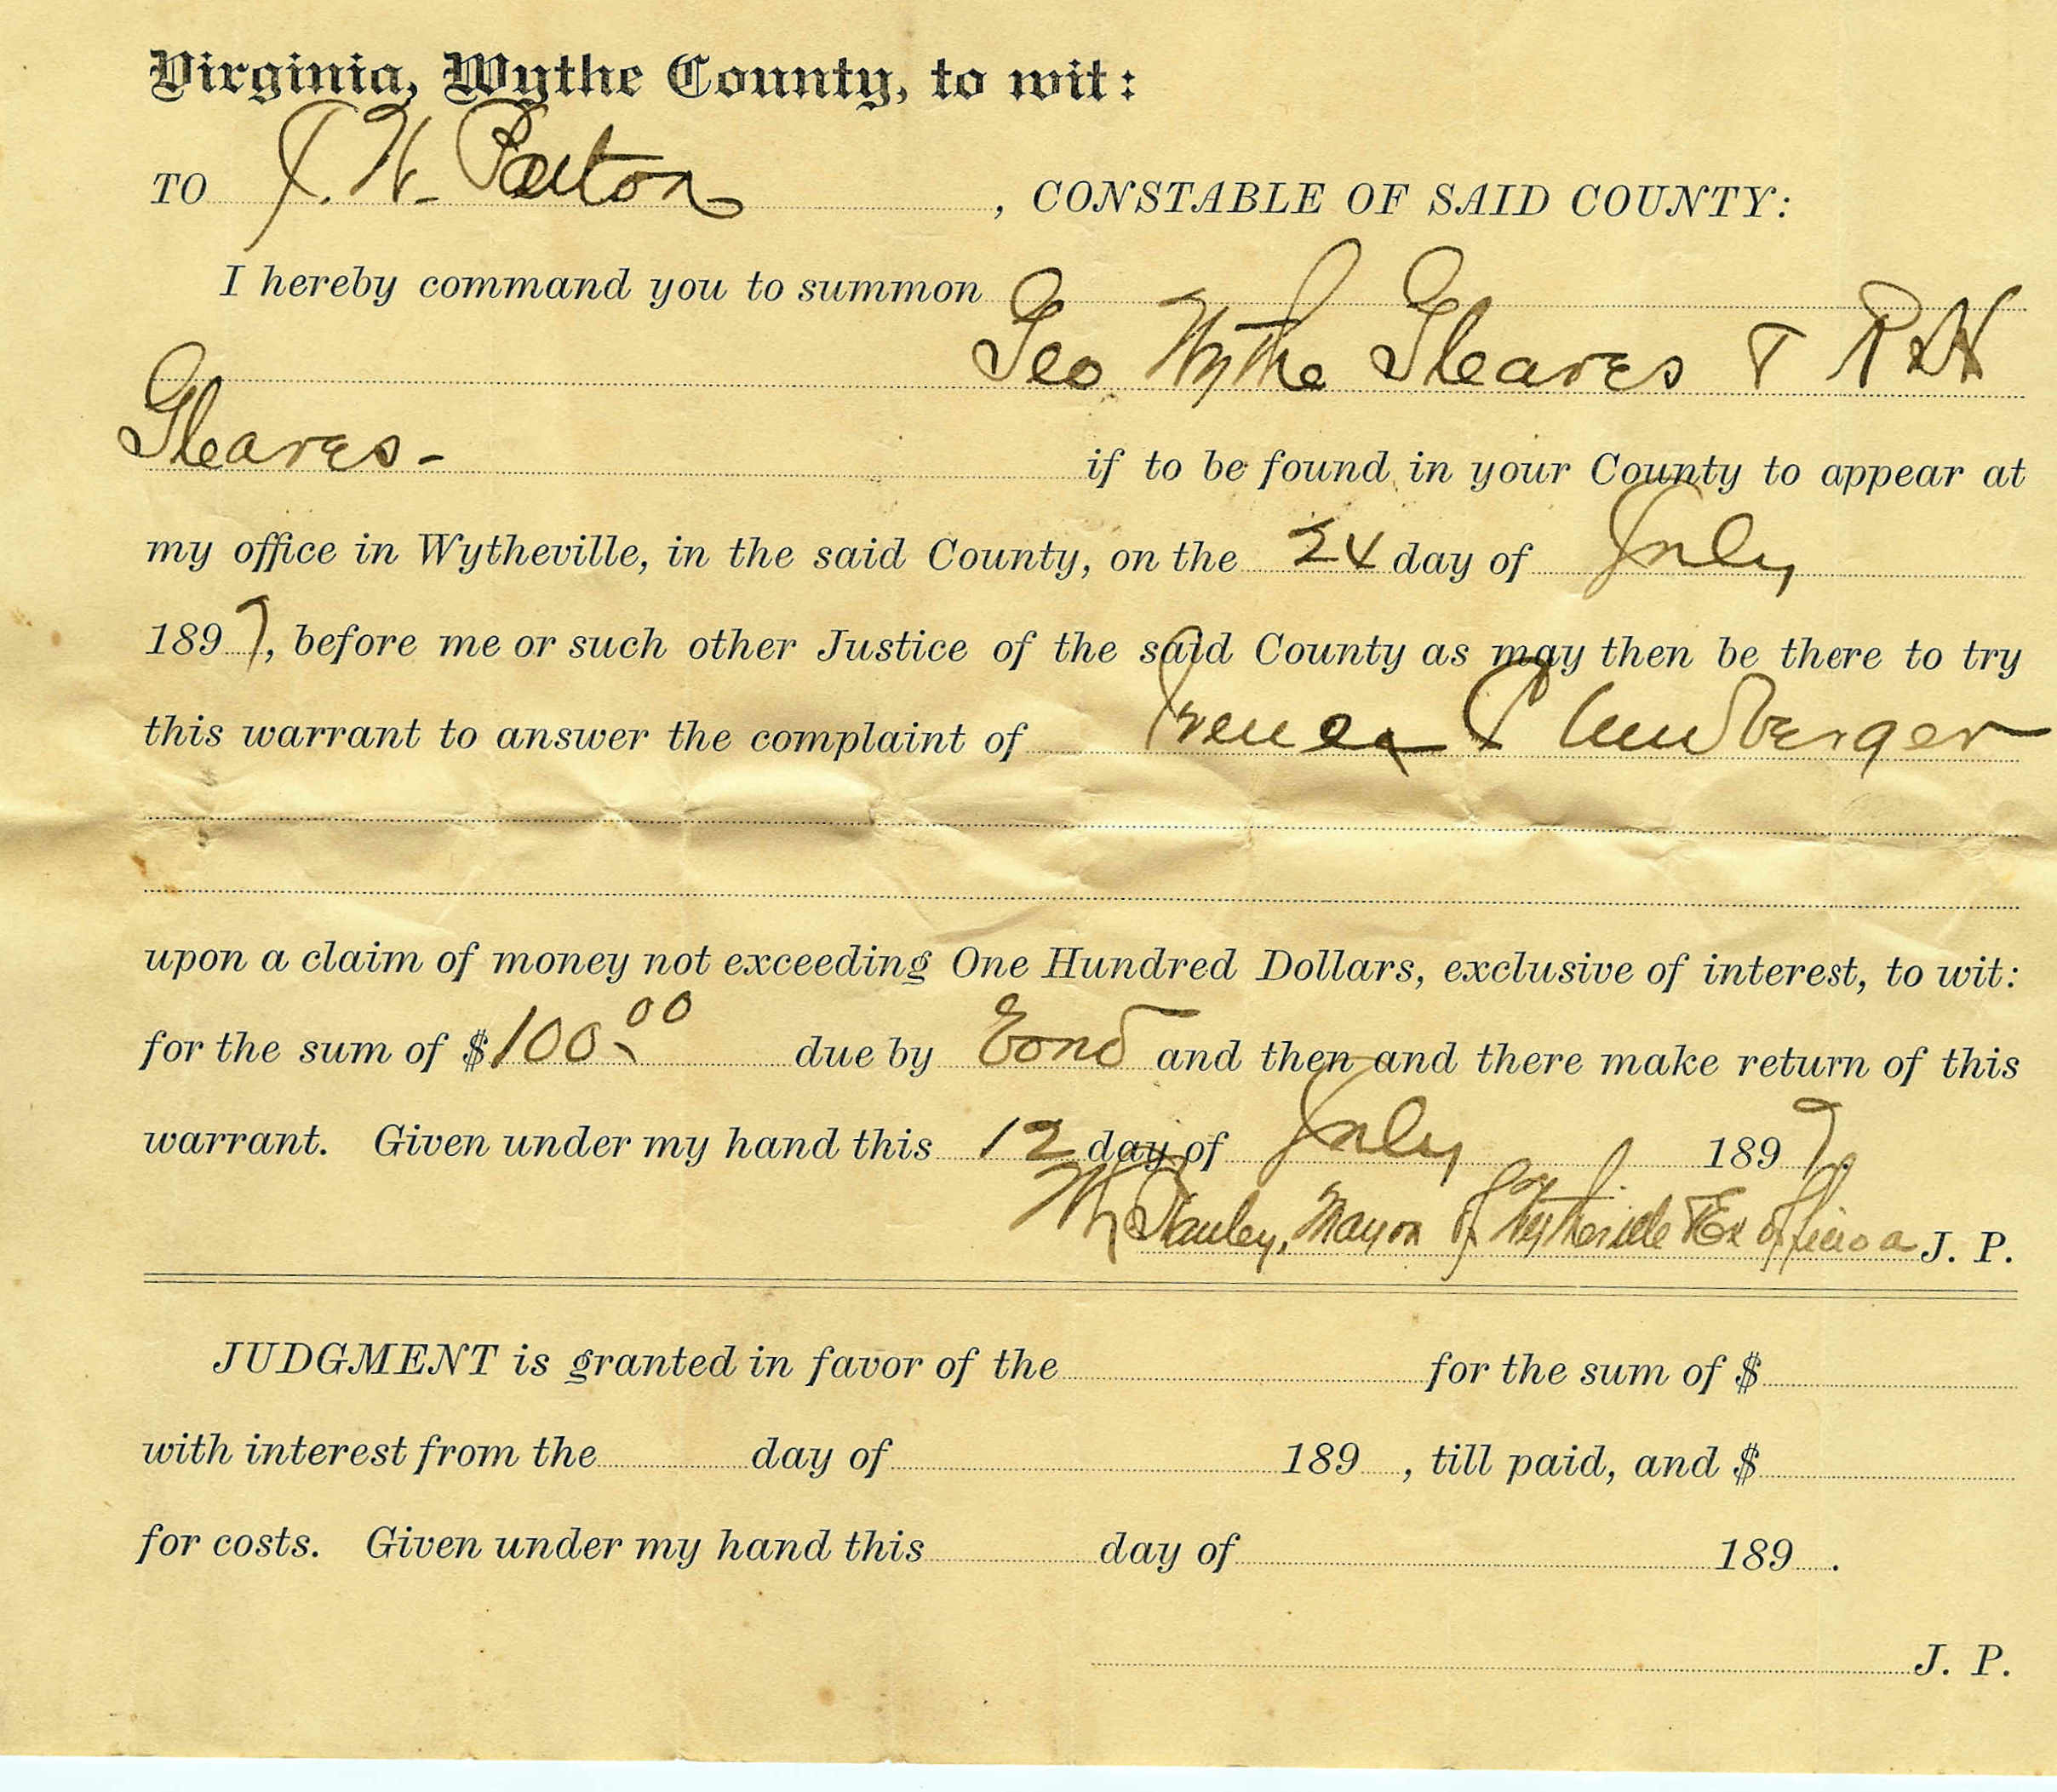 Virginia, Wythe County, to wit:
TO J. W. Paxton, CONSTABLE OF SAID COUNTY:
I hereby command you to summon
Geo Wythe Gleaves & R H
Gleaves - if to be found in your County to appear at
my office in Wytheville, in the said County, on the 24 day of July
1897, before me or such other Justice of the said County as may then be there to try
this warrant to answer the complaint of Umberger
upon a claim of money not exceeding One Hundred Dollars, exclusive of interest, to wit:
for the sum of $100.00 due by Bond and then and there make return of this
warrant. Given under my hand this 12 day of July 1897.
Stanley, Mayor of Wytheville & Ex officio a J. P.
JUDGMENT is granted in favor of the for the sum of $
with interest from the day of 189 , till paid, and $
for costs. Given under my hand this day of 189 .
J. P.